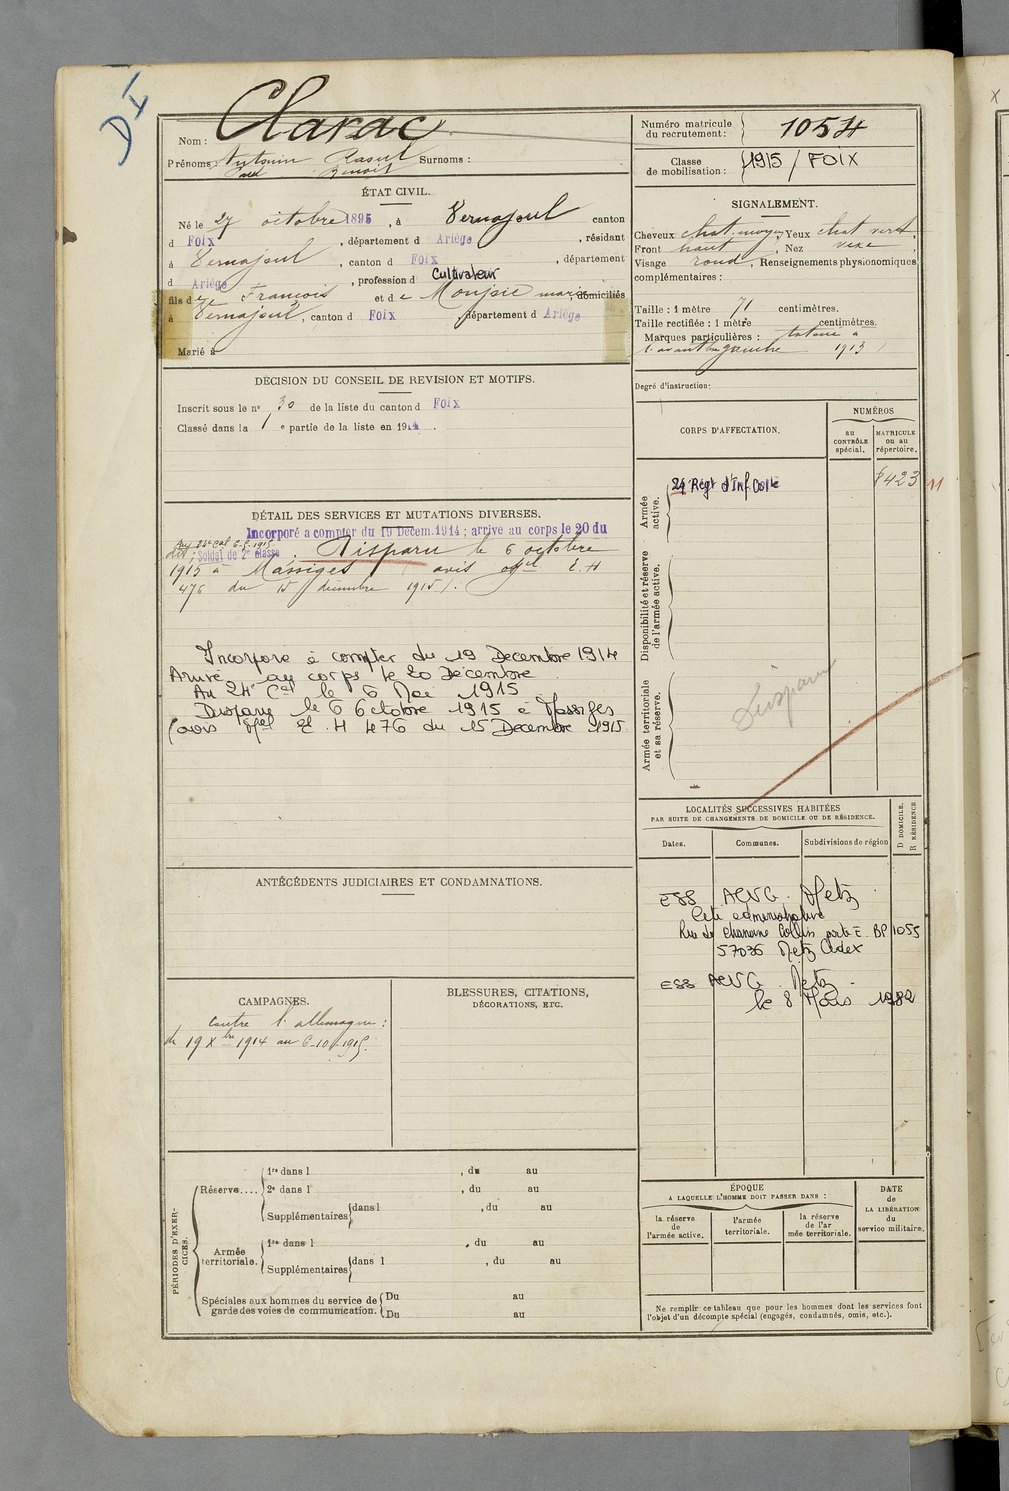 DI
Nom : Clarac
Prénoms : Antonin Raoul Surnoms :
Benoit
ÉTAT CIVIL.
Né le 27 octobre 1895, à Vernajoul canton
d Foix, département d Ariège, résidant
à Vernajoul, canton d Foix, département
d Ariège, profession d Cultivateur
fils de François et de Monjoie Marie, domiciliés
à Vernajoul, canton d Foix, département d Ariège
Marié à
DÉCISION DU CONSEIL DE REVISION ET MOTIFS.
Inscrit sous le n° 30 de la liste du canton d Foix
Classé dans la 1e partie de la liste en 1914.
DÉTAIL DES SERVICES ET MUTATIONS DIVERSES.
Incorporé a compter du 19 Décem. 1914 ; arrivé au corps le 20 du
Au 24e Cal 6.5.1915
dit ; Soldat de 2e classe. Disparu le 6 octobre
1915 à Massiges (avis offel E. H
476 du 15 décembre 1915).
Incorporé à compter du 19 Decembre 1914
Arrivé au corps le 20 Décembre
Au 24e Cal le 6 Mai 1915
Disparu le 6 Octobre 1915 à Massiges
(avis offel E. H 476 du 15 Decembre 1915
ANTÉCÉDENTS JUDICIAIRES ET CONDAMNATIONS.
CAMPAGNES.
Contre l'allemagne :
du 19 Xbre 1914 au 6-10-1915.
BLESSURES, CITATIONS,
DÉCORATIONS, ETC.
PÉRIODES D'EXERCICES.
Réserve.... 1re dans l , du au
2e dans l , du au
Supplémentaires dans l , du au
Armée territoriale. 1re dans l , du au
Supplémentaires dans l , du au
Spéciales aux hommes du service de Du au
garde des voies de communication. Du au
Numéro matricule
du recrutement : 1054
Classe
de mobilisation : 1915 / FOIX
SIGNALEMENT.
Cheveux chat. moyen, Yeux chat vert,
Front haut, Nez vexe
Visage rond, Renseignements physionomiques
complémentaires :
Taille : 1 mètre 71 centimètres.
Taille rectifiée : 1 mètre centimètres.
Marques particulières : tatoué à
l'avant bras gauche 1913
Degré d'instruction :
CORPS D'AFFECTATION.
NUMÉROS
au
CONTRÔLE
spécial.
MATRICULE
ou au
répertoire.
Armée
active.
24e Régt d'Inf Colle
8423 11
Disponibilité et réserve
de l'armée active.
Armée territoriale
et sa réserve.
Disparu
LOCALITÉS SUCCESSIVES HABITÉES
PAR SUITE DE CHANGEMENTS DE DOMICILE OU DE RÉSIDENCE.
D DOMICILE.
R RÉSIDENCE
Dates. Communes. Subdivisions de région
ESS ACVG. Metz
Cité administrative
Rue du Chanoine Collin porte E. BP 1055
57036 Metz Cedex
ESS ACVG. Metz.
le 8 Mars 1982
ÉPOQUE
A LAQUELLE L'HOMME DOIT PASSER DANS :
la réserve
de
l'armée active.
l'armée
territoriale.
la réserve
de l'ar
mée territoriale.
DATE
de
LA LIBÉRATION
du
service militaire.
Ne remplir ce tableau que pour les hommes dont les services font
l'objet d'un décompte spécial (engagés, condamnés, omis, etc.).